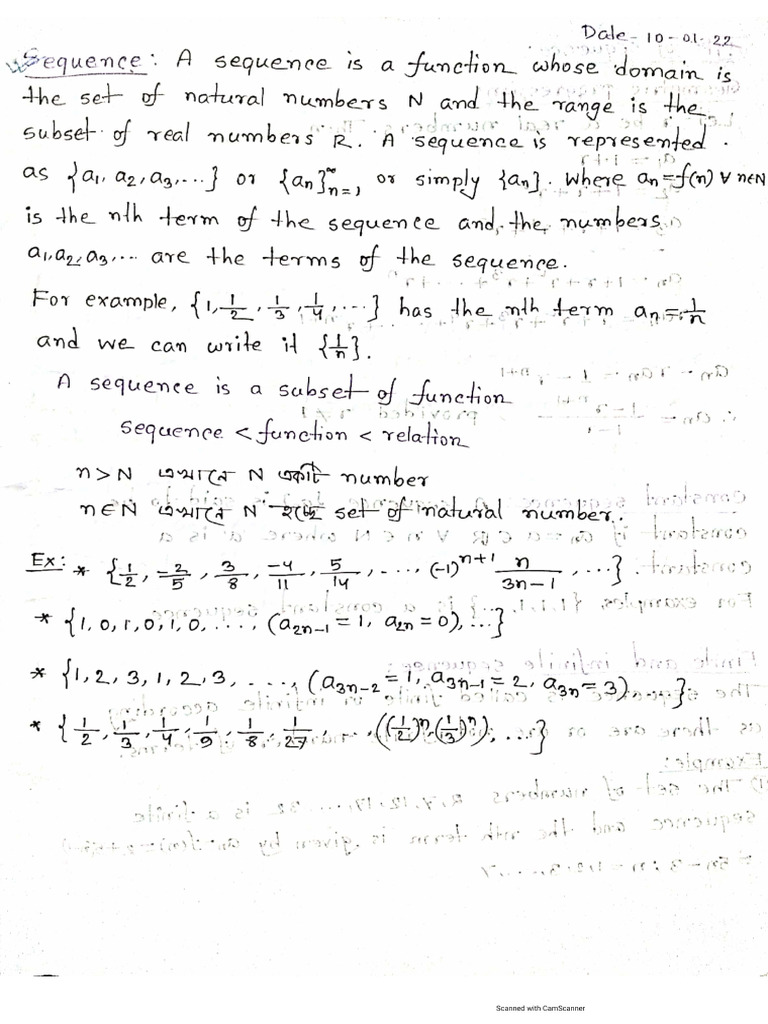 Date- 10-01-22
Sequence: A sequence is a function whose domain is
the set of natural numbers N and the range is the
subset of real numbers R. A sequence is represented
as {a₁, a₂, a₃, ...} or {aₙ}^∞ₙ₌₁ or simply {aₙ}. Where aₙ=f(n) ∀ n∈N
is the nth term of the sequence and the numbers
a₁, a₂, a₃, ... are the terms of the sequence.
For example, {1, 1/2, 1/3, 1/4, ...} has the nth term aₙ = 1/n
and we can write it {1/n}.
A sequence is a subset of function
sequence < function < relation
n>N এখানে N একটি number
n∈N এখানে N হচ্ছে set of natural number.
Ex: * {1/2, -2/5, 3/8, -4/11, 5/14, ..., (-1)ⁿ⁺¹ n/(3n-1), ...}.
* {1, 0, 1, 0, 1, 0, ..., (a₂ₙ₋₁ = 1, a₂ₙ = 0), ...}
* {1, 2, 3, 1, 2, 3, ..., (a₃ₙ₋₂ = 1, a₃ₙ₋₁ = 2, a₃ₙ = 3) ...}
* {1/2, 1/3, 1/4, 1/9, 1/8, 1/27, ..., ((1/2)ⁿ, (1/3)ⁿ), ...}
Scanned with CamScanner